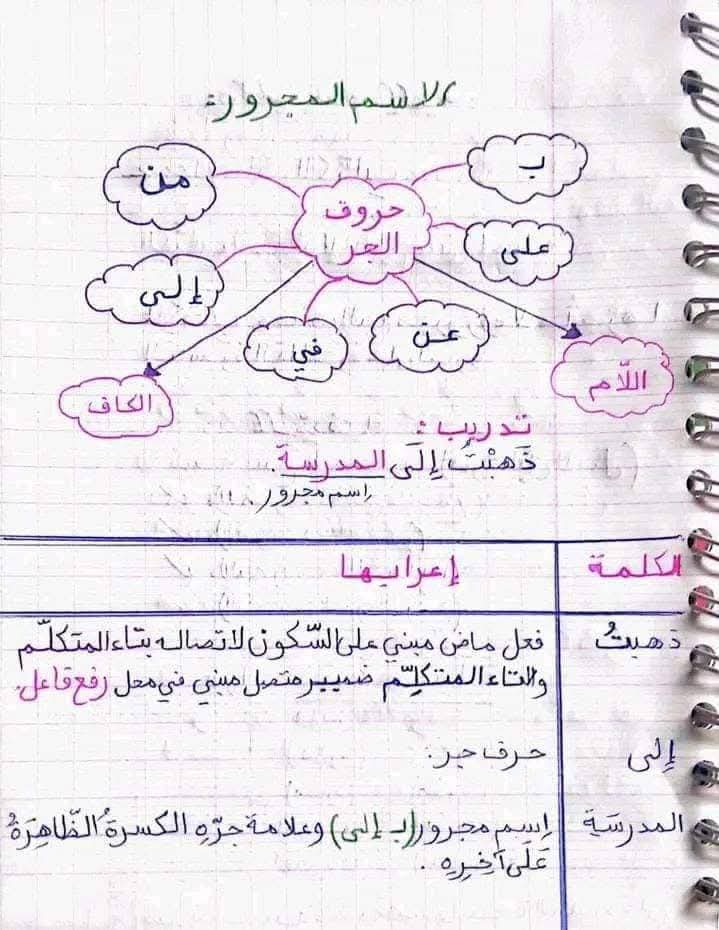 الاسم المجرور:
حروف الجر
ب
على
عن
في
إلى
من
اللّام
الكاف
تدريب:
ذَهَبْتُ إِلَى المدرسة.
اسم مجرور
الكلمة إعرابها
ذهبتُ فعل ماض مبني على السّكون لاتصاله بتاء المتكلّم
والتاء المتكلِّم ضمير متصل مبني في محل رفع فاعل.
إِلى حرف جر.
المدرسَةِ اِسم مجرور (بـ إلى) وعلامة جرّهِ الكسرةُ الظّاهِرَةُ
عَلَى آخِرِهِ.